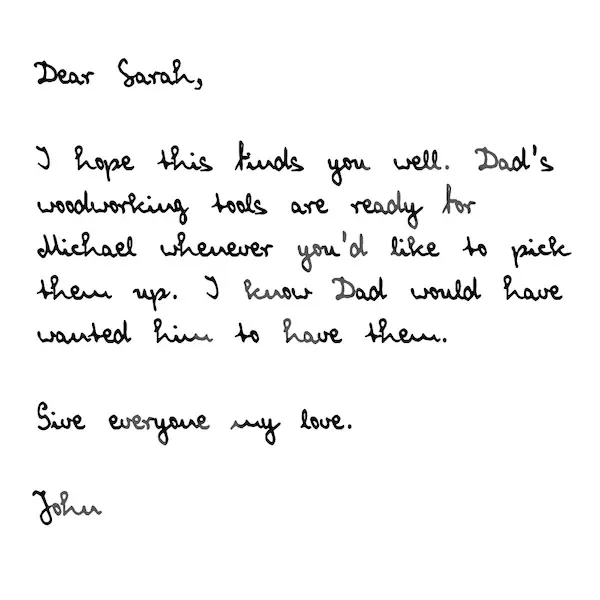 Dear Sarah,
I hope this finds you well. Dad's
woodworking tools are ready for
Michael whenever you'd like to pick
them up. I know Dad would have
wanted him to have them.
Give everyone my love.
John